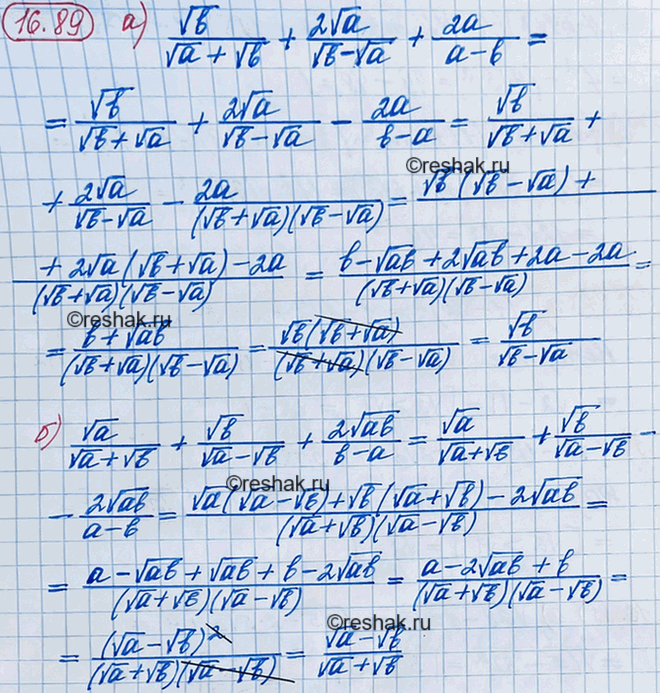 16.89 а) √b/(√a + √b) + 2√a/(√b-√a) + 2a/(a-b) =
= √b/(√b+√a) + 2√a/(√b-√a) - 2a/(b-a) = √b/(√b+√a) +
©reshak.ru
+ 2√a/(√b-√a) - 2a/((√b+√a)(√b-√a)) = √b(√b-√a) +
+ 2√a(√b+√a) - 2a/((√b+√a)(√b-√a)) = (b-√ab+2√ab+2a-2a)/((√b+√a)(√b-√a)) =
©reshak.ru
= (b+√ab)/((√b+√a)(√b-√a)) = √b(√b+√a)/((√b+√a)(√b-√a)) = √b/(√b-√a)
б) √a/(√a+√b) + √b/(√a-√b) + 2√ab/(b-a) = √a/(√a+√b) + √b/(√a-√b) -
©reshak.ru
- 2√ab/(a-b) = (√a(√a-√b)+√b(√a+√b)-2√ab)/((√a+√b)(√a-√b)) =
= (a-√ab+√ab+b-2√ab)/((√a+√b)(√a-√b)) = (a-2√ab+b)/((√a+√b)(√a-√b)) =
©reshak.ru
= (√a-√b)²/((√a+√b)(√a-√b)) = (√a-√b)/(√a+√b)